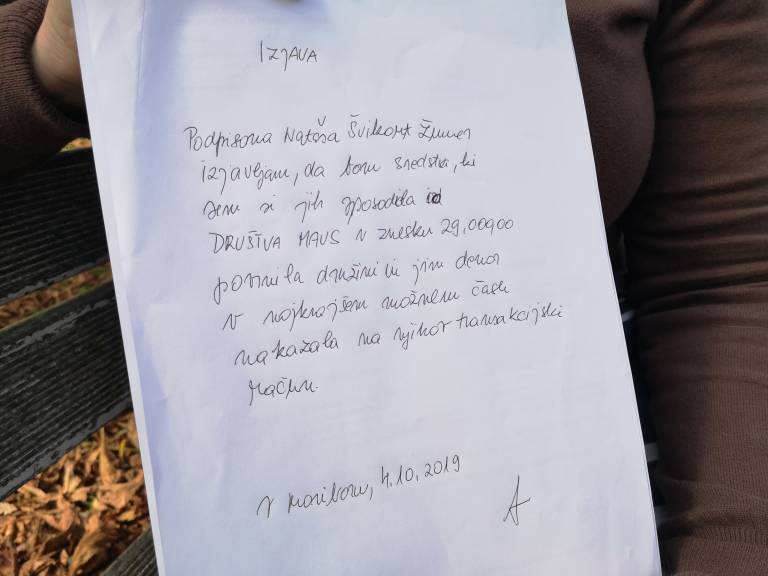 IZJAVA
Podpisana Nataša Švikart Žumer
izjavljam, da bom sredstva, ki
sem si jih sposodila od
DRUŠTVA MAUS v znesku 29,00900
povrnila družini in jim denar
v najkrajšem možnem času
nakazala na njihov transakcijski
račun.
v Mariboru, 4.10.2019